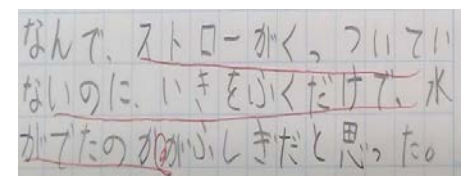 なんで、ストローがくっついてい
ないのに、いきをふくだけで、水
がでたのかがふしぎだと思った。